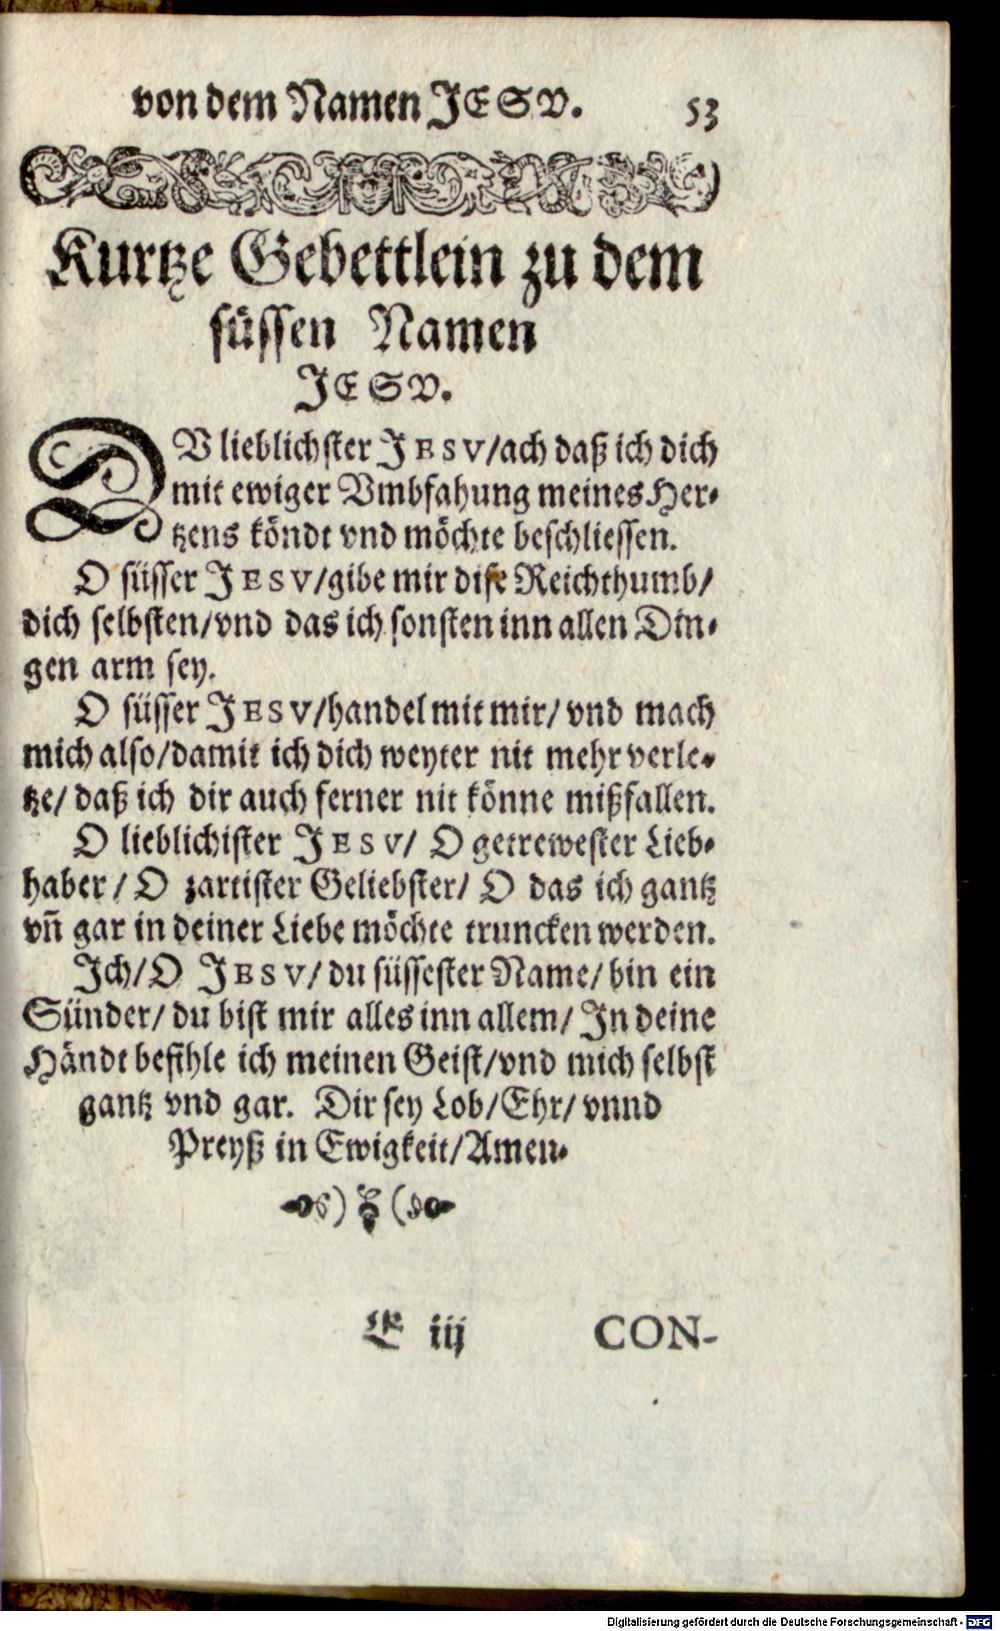 von dem Namen JESV. 53
Kurtze Gebettlein zu dem
süssen Namen
JESV.
DV lieblichster JESV/ach daß ich dich
mit ewiger Vmbfahung meines Her-
tzens köndt vnd möchte beschliessen.
O süsser JESV/gibe mir dise Reichthumb/
dich selbsten/vnd das ich sonsten inn allen Din-
gen arm sey.
O süsser JESV/handel mit mir/ vnd mach
mich also/damit ich dich weyter nit mehr verle-
tze/ daß ich dir auch ferner nit könne mißfallen.
O lieblichister JESV/ O getrewester Lieb-
haber/ O zartister Geliebster/ O das ich gantz
vñ gar in deiner Liebe möchte truncken werden.
Ich/O JESV/ du süssester Name/ bin ein
Sünder/ du bist mir alles inn allem/ In deine
Händt befihle ich meinen Geist/vnd mich selbst
gantz vnd gar. Dir sey Lob/Ehr/ vnnd
Preyß in Ewigkeit/Amen.
E iij CON-
Digitalisierung gefördert durch die Deutsche Forschungsgemeinschaft - DFG